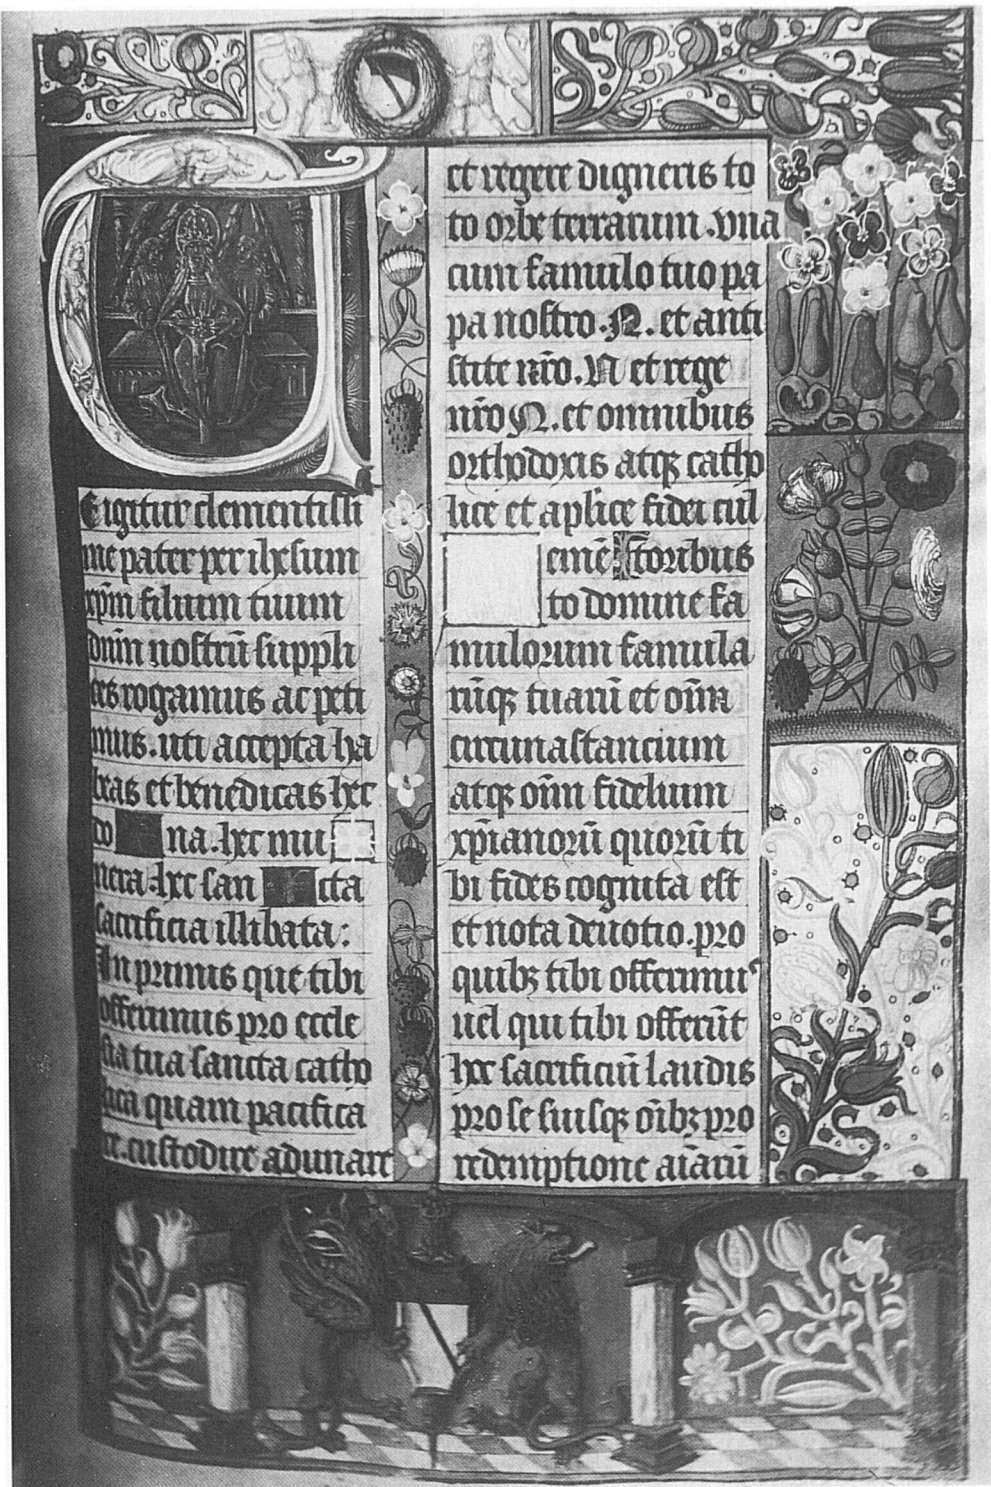 T
E igitur clementissi
me pater per ihesum
xp̄m filium tuum
dnm̄ nostrū suppli
ces rogamus ac peti
mus. uti accepta ha
beas et benedicas hec
do na. hec mu
nera. hec san cta
sacrificia illibata:
In primis que tibi
offerimus pro eccle
sia tua sancta catho
lica quam pacifica
re. custodire adunare
et regere digneris to
to orbe terrarum. vna
cum famulo tuo pa
pa nostro. N. et anti
stite nr̄o. N et rege
nr̄o N. et omnibus
orthodoxis atqꝫ catho
lice et aplīce fidei cul
emē toribus
to domine fa
mulorum famula
rūqꝫ tuarū et oīm
circumastancium
atqꝫ oīm fidelium
xp̄ianorū quorū ti
bi fides cognita est
et nota deuotio. pro
quibꝫ tibi offerimuꝰ
uel qui tibi offerūt
hec sacrificiū laudis
pro se suisqꝫ oībꝫ pro
redemptione aīarū